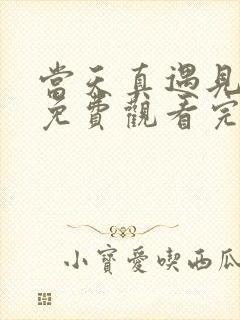 當天真遇見
免費觀看完
小寶愛喫西瓜